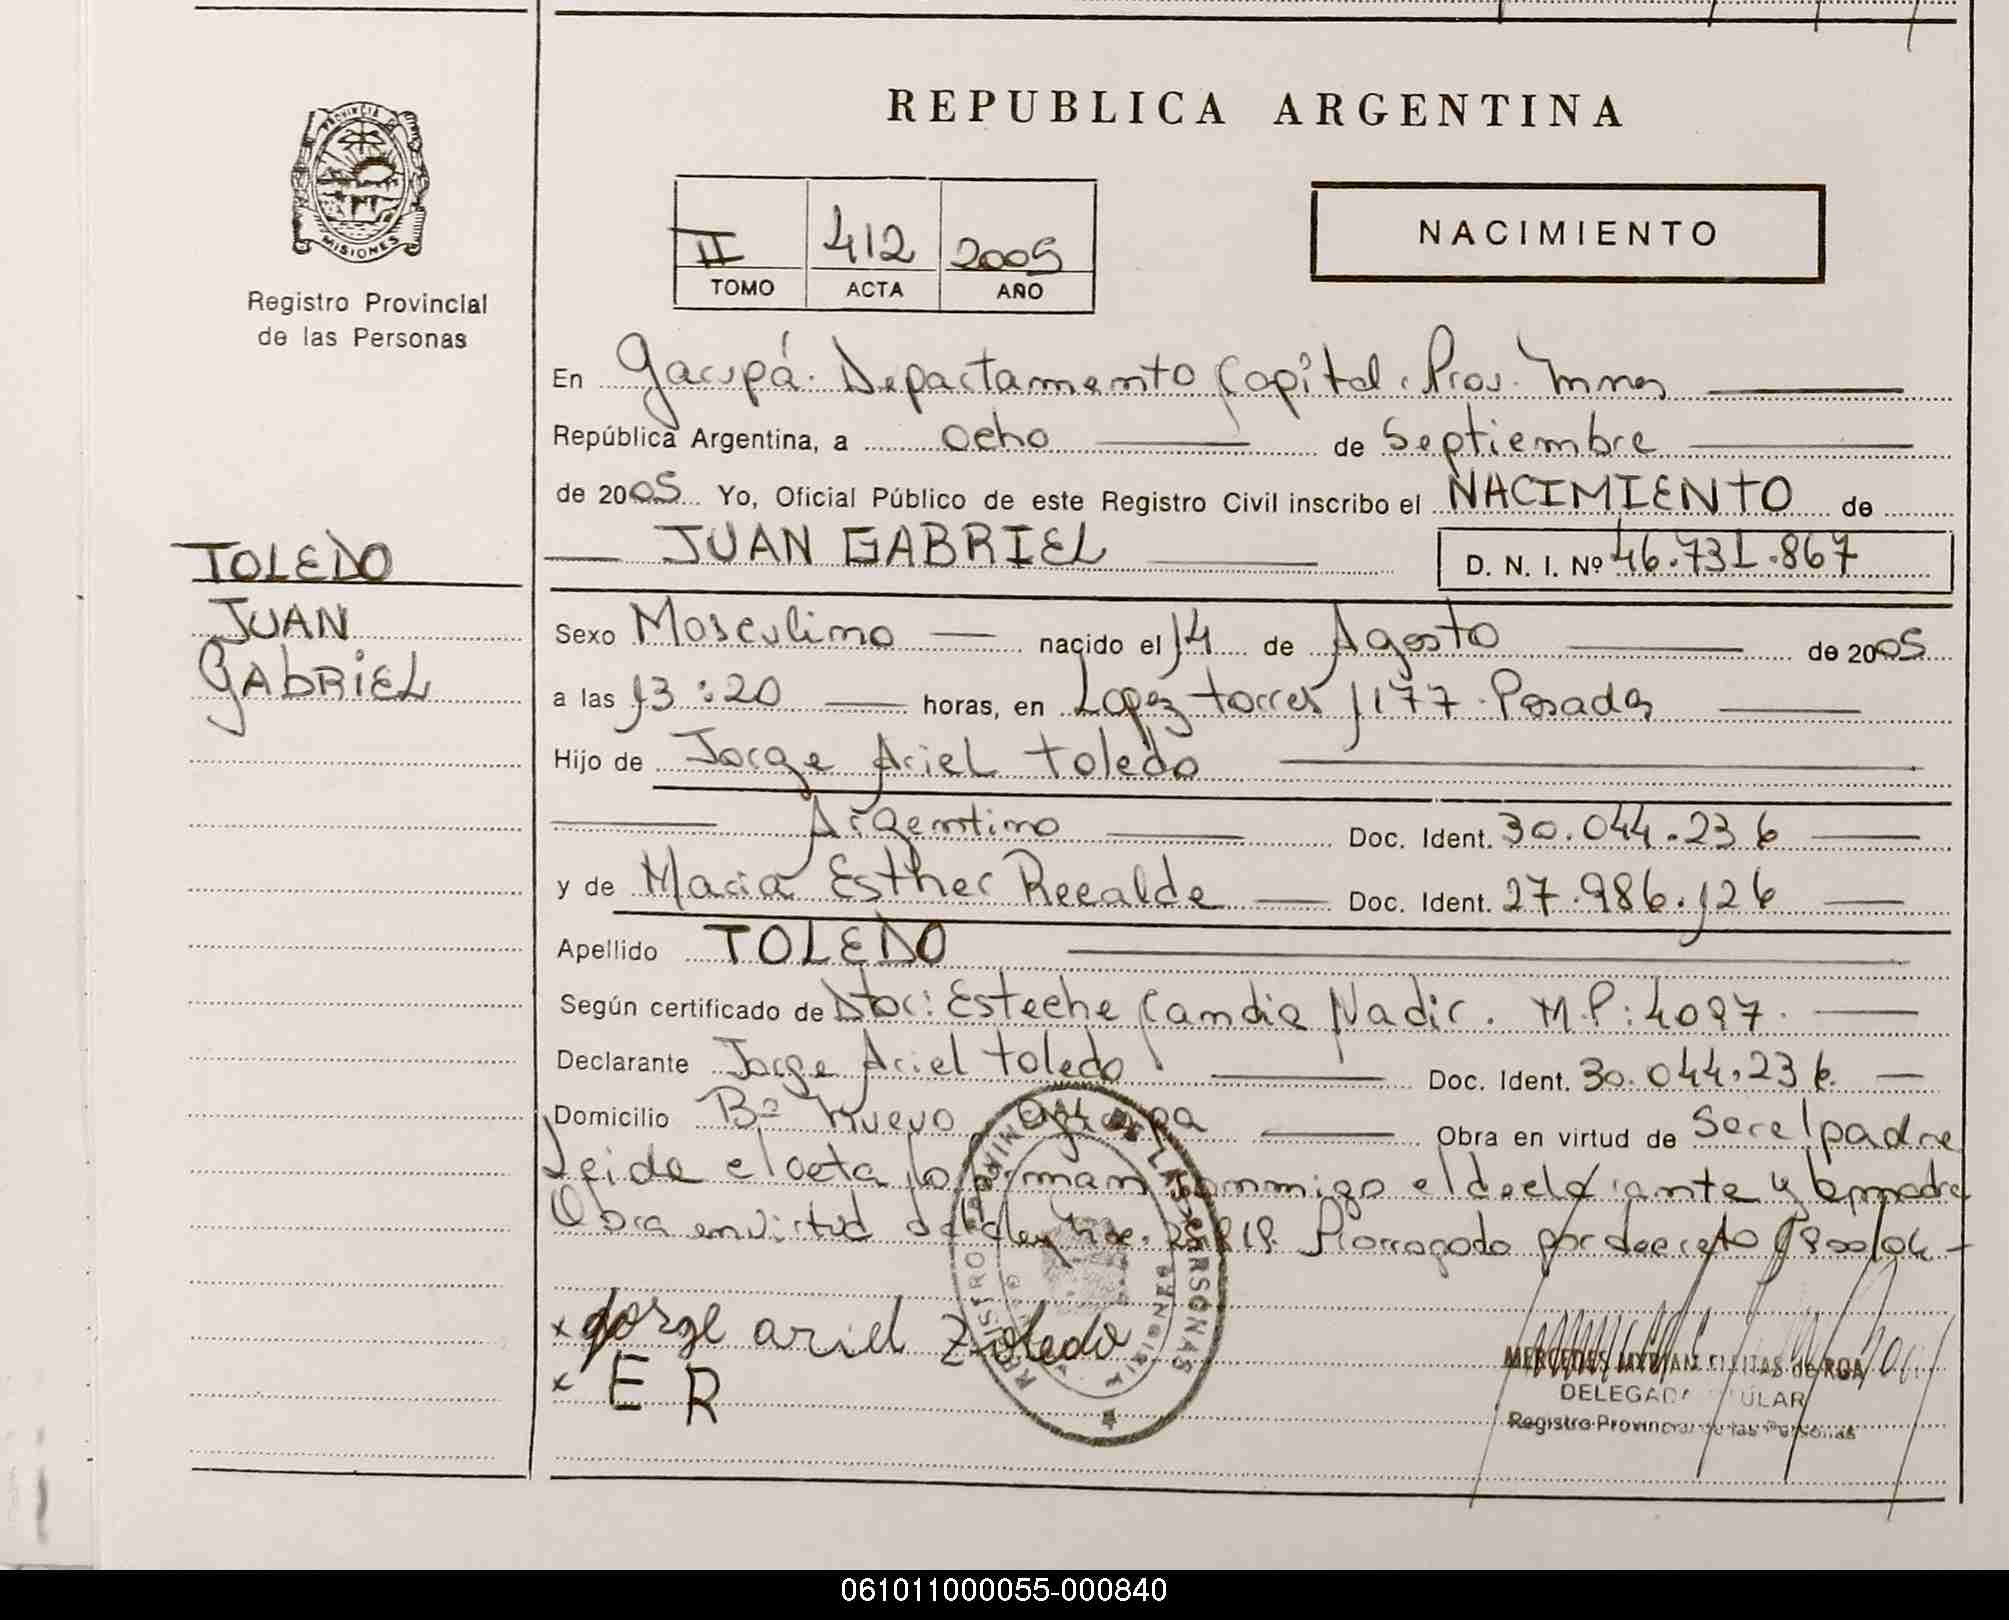 REPUBLICA ARGENTINA
PROVINCIA DE
MISIONES
Registro Provincial
de las Personas
II 412 2005
TOMO ACTA AÑO
NACIMIENTO
En Garupá. Departamento Capital. Prov. Mnes
República Argentina, a ocho de Septiembre
de 2005 Yo, Oficial Público de este Registro Civil inscribo el NACIMIENTO de
JUAN GABRIEL D. N. I. Nº 46.731.867
TOLEDO
JUAN
GABRIEL
Sexo Masculino nacido el 14 de Agosto de 2005
a las 13:20 horas, en Lopez torres 1177. Posadas
Hijo de Jorge Ariel Toledo
Argentino Doc. Ident. 30.044.236
y de Maria Esther Recalde Doc. Ident. 27.986.126
Apellido TOLEDO
Según certificado de Dtor: Esteche Candia Nadir. M.P: 4097.
Declarante Jorge Ariel Toledo Doc. Ident. 30.044.236.
Domicilio Bº Nuevo Garupa Obra en virtud de Ser el padre
Leida el acta lo firman conmigo el declarante y la madre
Obra en virtud de ley Nac. Prorrogado por decreto
x Jorge ariel Toledo
x E R
MERCEDES MYRIAN FLEITAS de ROA
DELEGADA TITULAR
Registro Provincial de las Personas
061011000055-000840